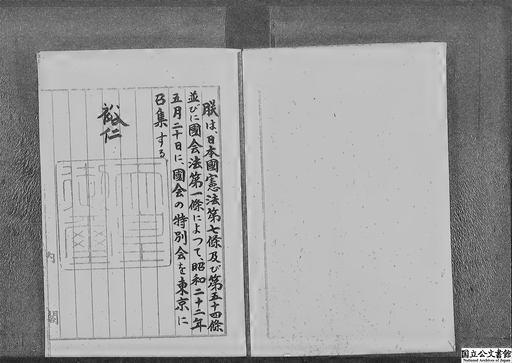 朕は、日本國憲法第七條及び第五十四條
並びに國会法第一條によつて、昭和二十二年
五月二十日に、國会の特別会を東京に
召集する。
裕仁
天皇御璽
内閣
国立公文書館
National Archives of Japan